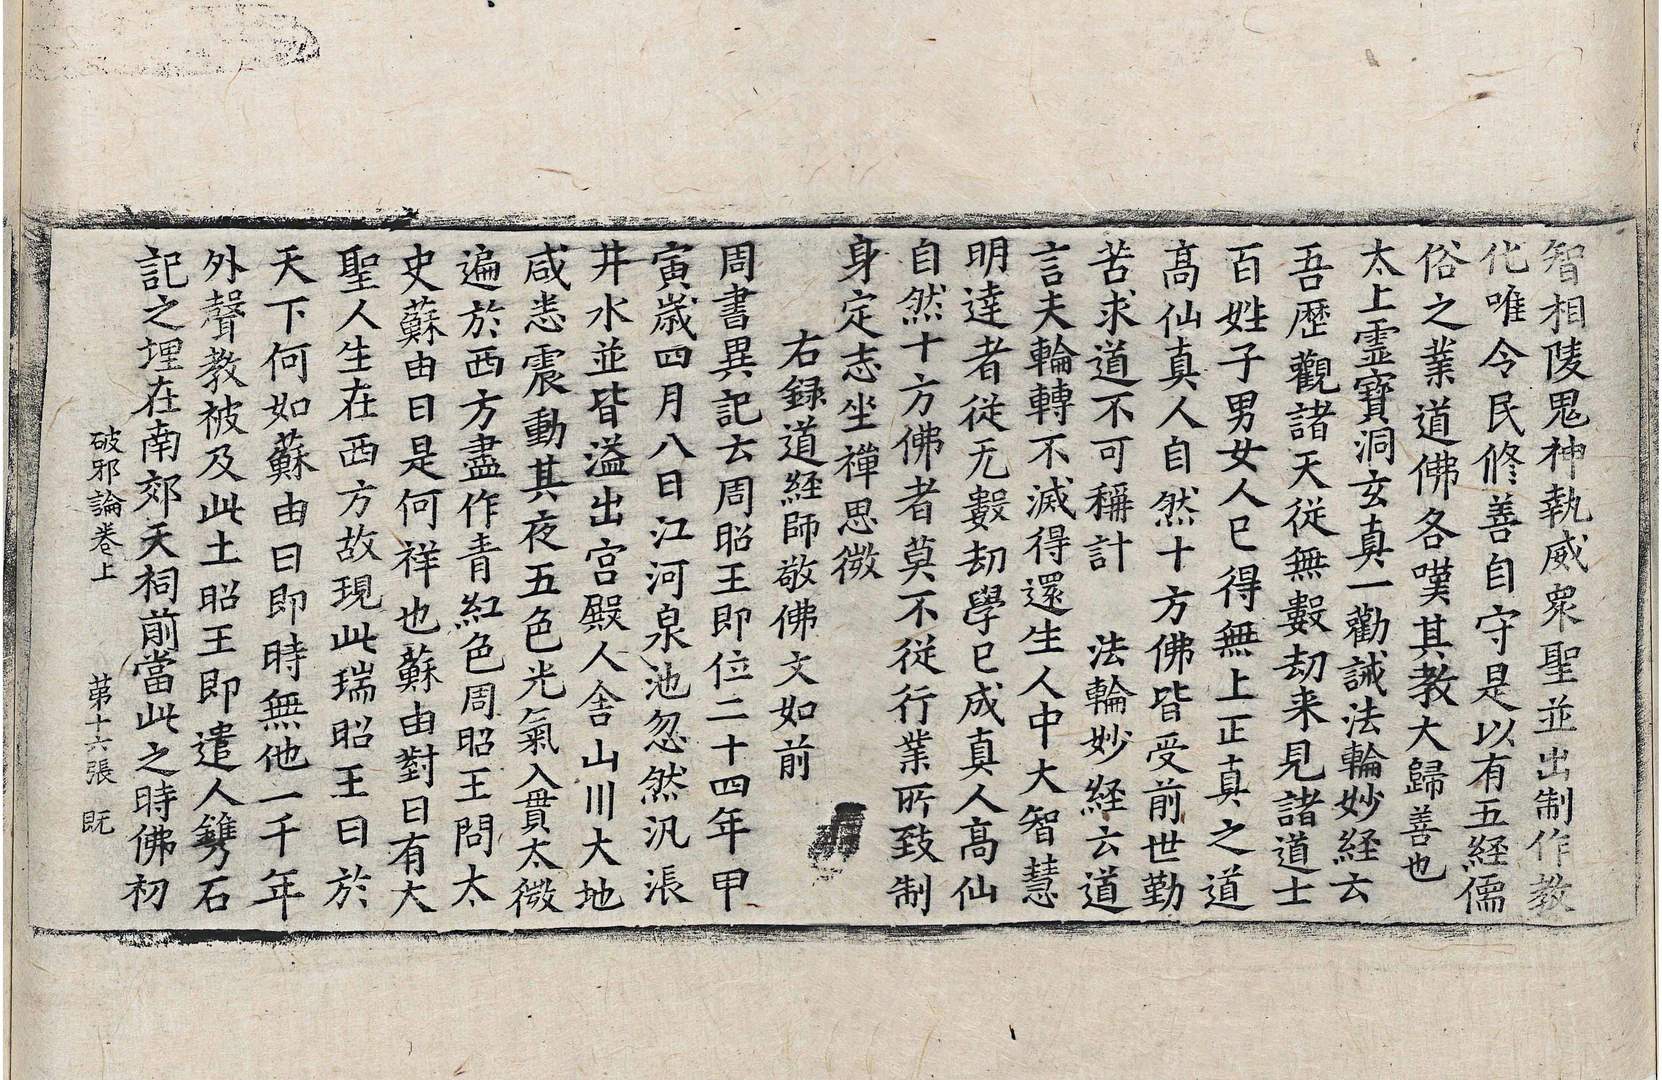 智相陵鬼神執威衆聖並出制作教
化唯令民修善自守是以有五経儒
俗之業道佛各嘆其教大歸善也
太上霊寳洞玄真一勸誡法輪妙経云
吾歴觀諸天従無數劫来見諸道士
百姓子男女人已得無上正真之道
髙仙真人自然十方佛皆受前世勤
苦求道不可稱計　法輪妙経云道
言夫輪轉不滅得還生人中大智慧
明達者従无數劫學已成真人髙仙
自然十方佛者莫不従行業所致制
身定志坐禪思微
右録道経師敬佛文如前
周書異記云周昭王即位二十四年甲
寅歳四月八日江河泉池忽然汎漲
井水並皆溢出宫殿人舎山川大地
咸悉震動其夜五色光氣入貫太微
遍於西方盡作青紅色周昭王問太
史蘇由曰是何祥也蘇由對曰有大
聖人生在西方故現此瑞昭王曰於
天下何如蘇由曰即時無他一千年
外聲教被及此土昭王即遣人鐫石
記之埋在南郊天祠前當此之時佛初
破邪論巻上　苐十六張　既